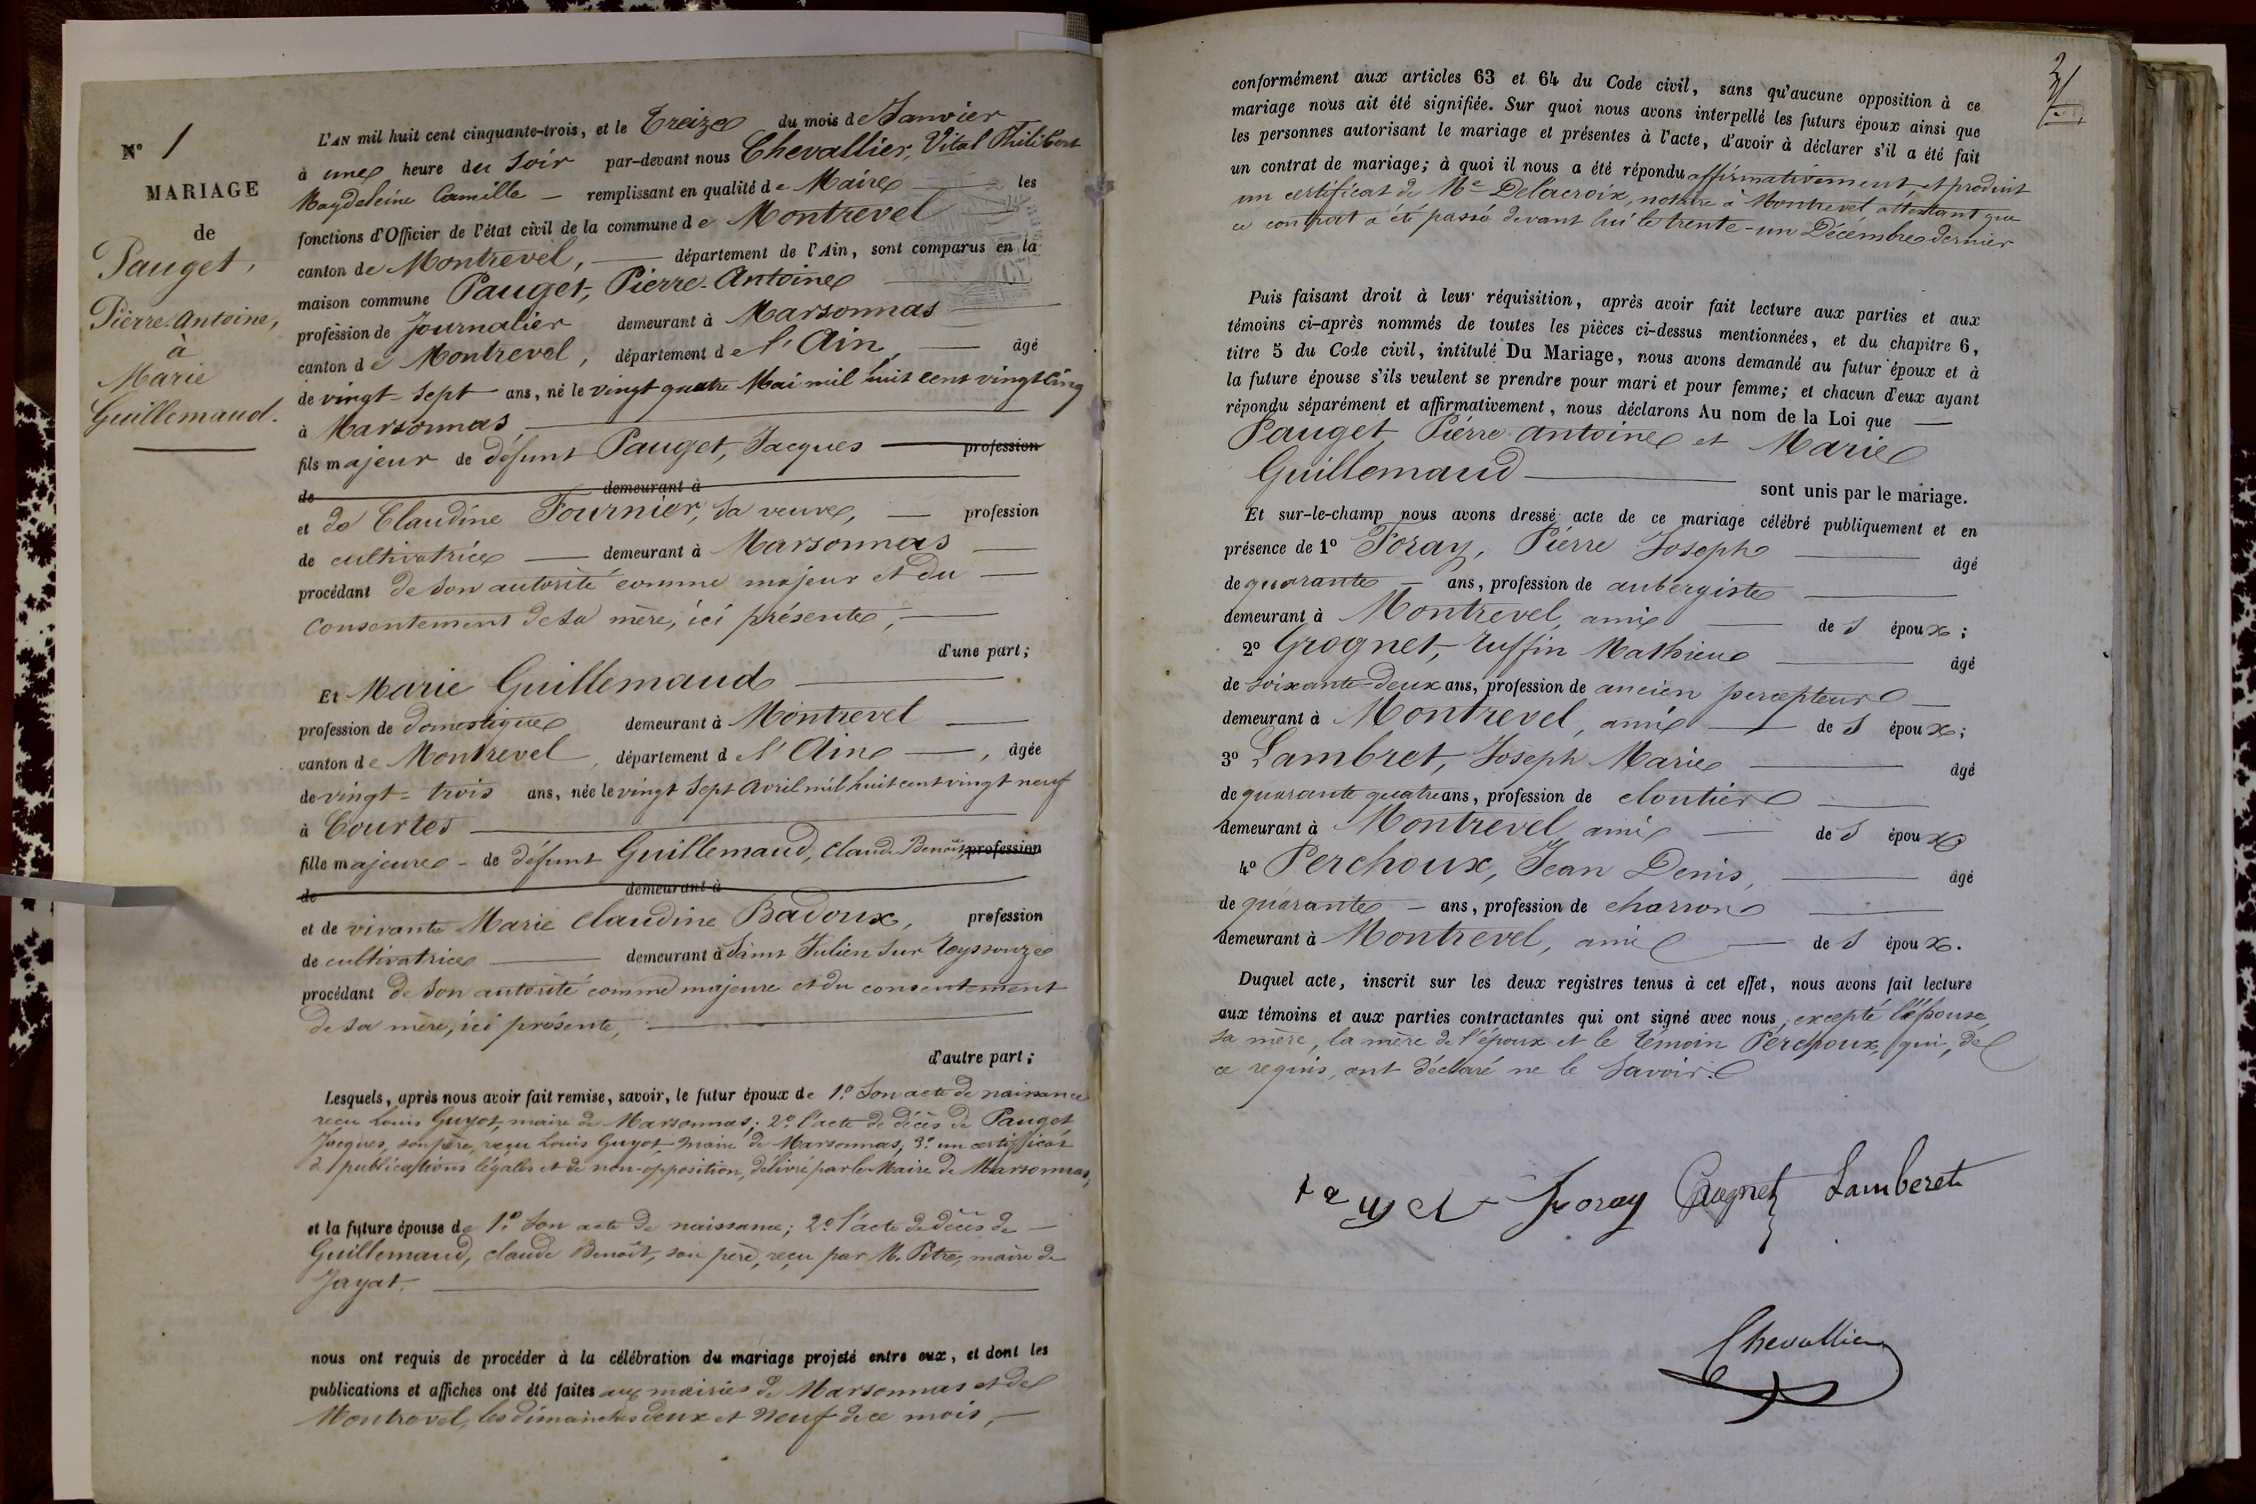 N° 1
MARIAGE
de
Pauget,
Pierre-Antoine,
à
Marie
Guillemaud.
L'AN mil huit cent cinquante-trois, et le Treize du mois de Janvier
à une heure du Soir par-devant nous Chevallier, Vital Philibert
Magdeleine Camille — remplissant en qualité de Maire — les
fonctions d'Officier de l'état civil de la commune de Montrevel
canton de Montrevel, — département de l'Ain, sont comparus en la
maison commune Pauget, Pierre-Antoine
profession de Journalier demeurant à Marsonnas
canton de Montrevel, département de l'Ain, — âgé
de vingt-sept ans, né le vingt quatre Mai mil huit cent vingt cinq
à Marsonnas
fils majeur de défunt Pauget, Jacques — profession
de demeurant à
et de Claudine Fournier, sa veuve, — profession
de cultivatrice — demeurant à Marsonnas —
procédant de son autorité comme majeur et du —
consentement de sa mère, ici présente, —
d'une part;
Et Marie Guillemaud
profession de domestique demeurant à Montrevel —
canton de Montrevel, département de l'Ain —, âgée
de vingt-trois ans, née le vingt sept avril mil huit cent vingt neuf
à Courtes
fille majeure - de défunt Guillemaud, Claude Benoît, profession
de demeurant à
et de vivante Marie Claudine Badoux, profession
de cultivatrice — demeurant à Saint Julien sur Reyssouze
procédant de son autorité comme majeure et du consentement
de sa mère, ici présente, —
d'autre part;
Lesquels, après nous avoir fait remise, savoir, le futur époux de 1.° Son acte de naissance
reçu Louis Guyot, maire de Marsonnas; 2.° l'acte de décès de Pauget
Jacques, son père, reçu Louis Guyot, maire de Marsonnas, 3.° un certificat
de publications légales et de non-opposition, délivré par le Maire de Marsonnas,
et la future épouse de 1.° Son acte de naissance; 2.° l'acte de décès de —
Guillemaud, claude Benoît, son père, reçu par M. Pitre, maire de
Jayat.
nous ont requis de procéder à la célébration du mariage projeté entre eux, et dont les
publications et affiches ont été faites aux mairies de Marsonnas et de
Montrevel, les dimanches deux et neuf de ce mois, —
conformément aux articles 63 et 64 du Code civil, sans qu'aucune opposition à ce
mariage nous ait été signifiée. Sur quoi nous avons interpellé les futurs époux ainsi que
les personnes autorisant le mariage et présentes à l'acte, d'avoir à déclarer s'il a été fait
un contrat de mariage; à quoi il nous a été répondu affirmativement, et produit
un certificat de Me Delacroix, notaire à Montrevel attestant que
ce contrat a été passé devant lui le trente-un Décembre dernier
Puis faisant droit à leur réquisition, après avoir fait lecture aux parties et aux
témoins ci-après nommés de toutes les pièces ci-dessus mentionnées, et du chapitre 6,
titre 5 du Code civil, intitulé Du Mariage, nous avons demandé au futur époux et à
la future épouse s'ils veulent se prendre pour mari et pour femme; et chacun d'eux ayant
répondu séparément et affirmativement, nous déclarons Au nom de la Loi que —
Pauget, Pierre Antoine et Marie
Guillemaud — sont unis par le mariage.
Et sur-le-champ nous avons dressé acte de ce mariage célébré publiquement et en
présence de 1° Foray, Pierre Joseph — âgé
de quarante — ans, profession de aubergiste —
demeurant à Montrevel, ami — des époux;
2° Grognet, Ruffin Mathieu — âgé
de soixante-deux ans, profession de ancien percepteur —
demeurant à Montrevel, ami — des époux;
3° Lambret, Joseph Marie — âgé
de quarante quatre ans, profession de cloutier —
demeurant à Montrevel, ami — des époux
4° Perchoux, Jean Denis, — âgé
de quarante — ans, profession de charron —
demeurant à Montrevel, ami — des époux.
Duquel acte, inscrit sur les deux registres tenus à cet effet, nous avons fait lecture
aux témoins et aux parties contractantes qui ont signé avec nous, excepté l'épouse,
sa mère, la mère de l'époux et le témoin Perchoux, qui, de
ce requis, ont déclaré ne le savoir.
Foray Grognet Lamberet
Chevallier